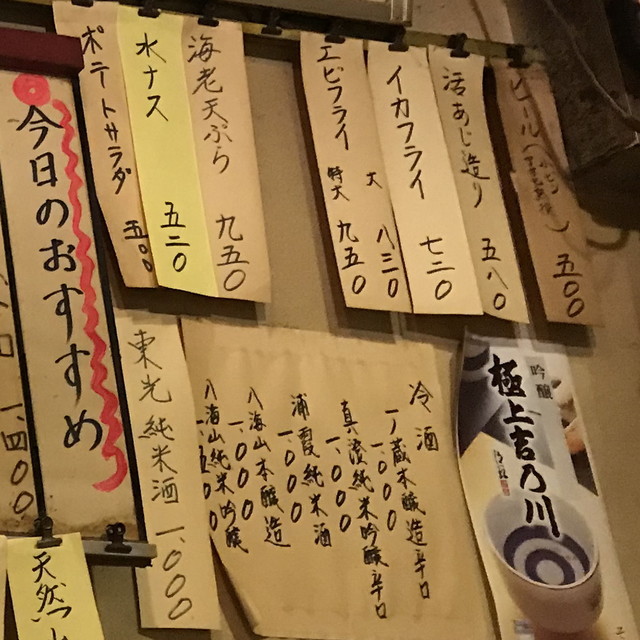 ビール（
五〇〇
活あじ造り 五八〇
イカフライ 七三〇
エビフライ
大 八三〇
特大 九五〇
海老天ぷら 九五〇
水ナス 五二〇
ポテトサラダ 五〇〇
今日のおすすめ
一、四〇〇
吟醸
極上吉乃川
冷酒
一ノ蔵本醸造辛口
一、〇〇〇
真澄純米吟醸辛口
一、〇〇〇
浦霞純米酒
一、〇〇〇
八海山本醸造
一、〇〇〇
八海山純米吟醸
一、五〇〇
東光純米酒 一、〇〇〇
天然